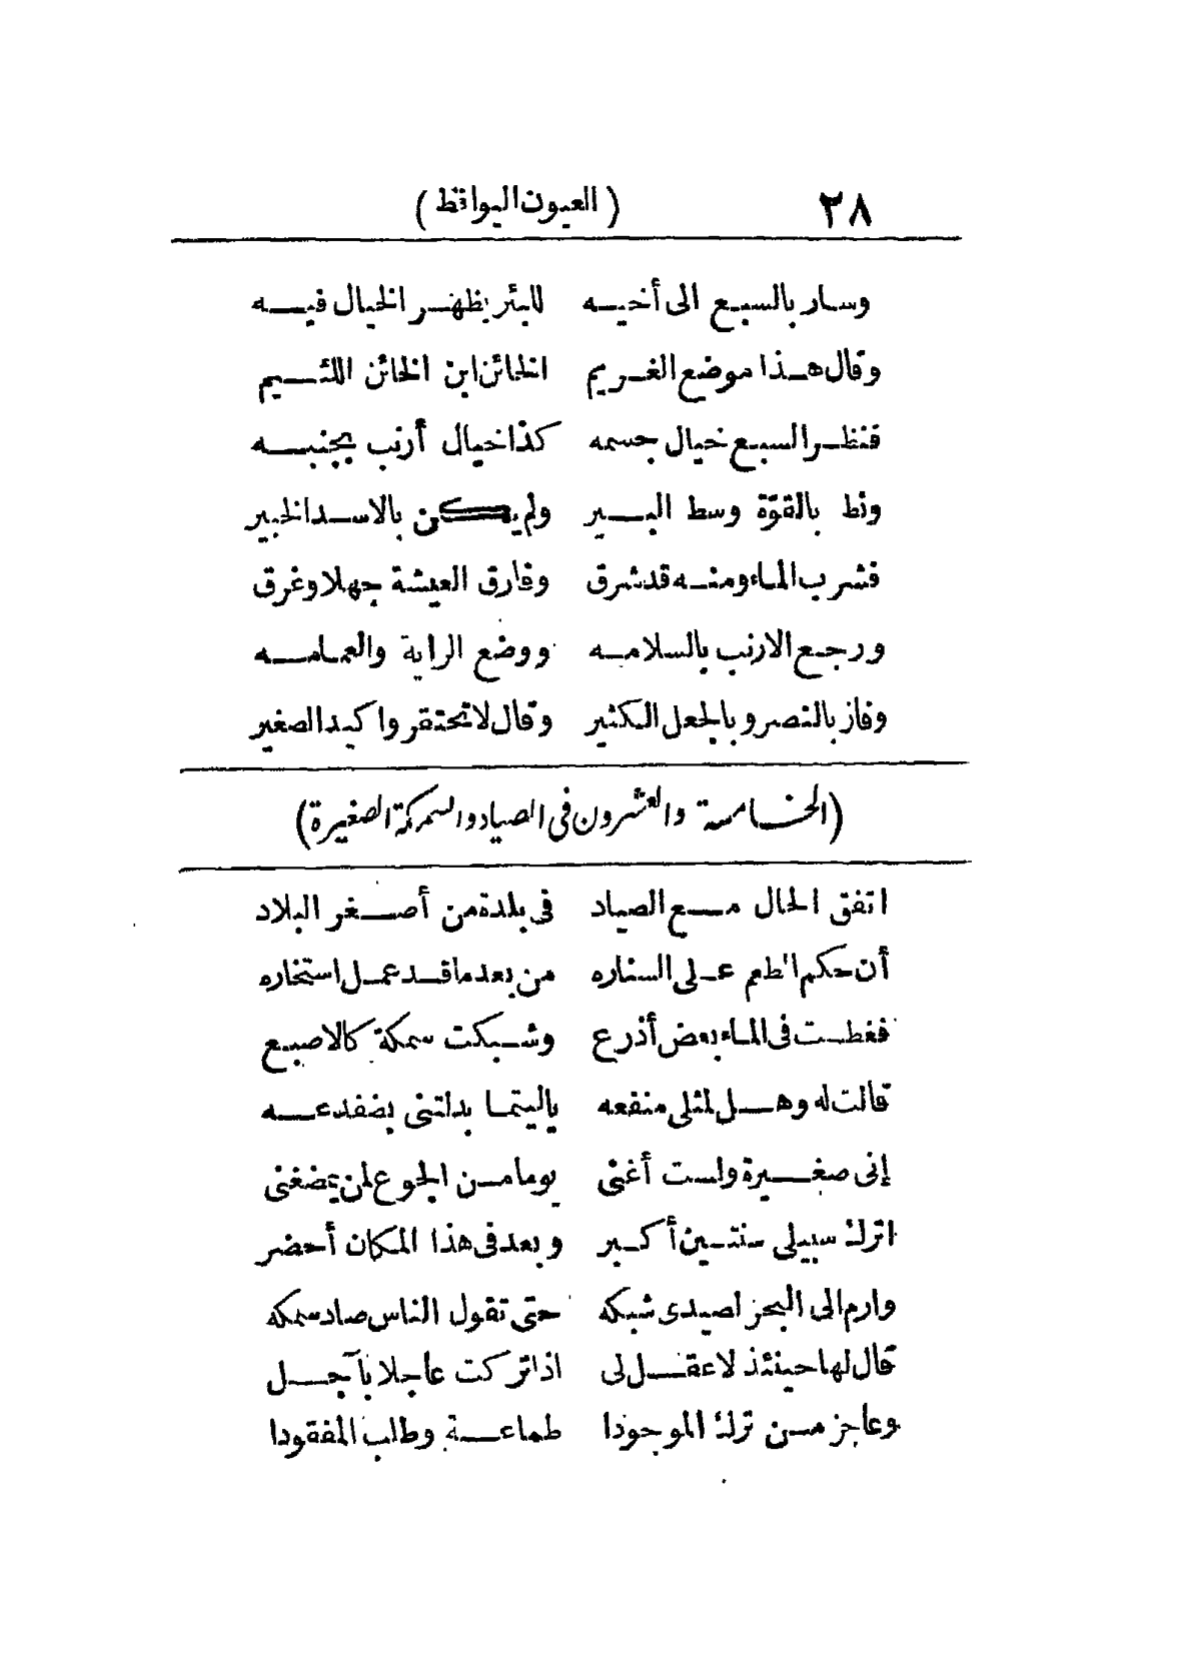 ٢٨ (العيون اليواقظ)
وسار بالسبع الى أخيه للبئر يظهر الخيال فيه
وقال هذا موضع الغريم الخائن ابن الخائن اللئيم
فنظر السبع خيال جسمه كذا خيال أرنب بجنبه
ونط بالقوّة وسط البير ولم يكن بالاسد الخبير
فشرب الماء ومنه قد شرق وفارق العيشة جهلا وغرق
ورجع الارنب بالسلامه ووضع الراية والعمامه
وفاز بالنصر وبالجعل الكثير وقال لا تحتقروا كيد الصغير
(الخامسة والعشرون فى الصياد والسمكة الصغيرة)
اتفق الحال مع الصياد فى بلدة من أصغر البلاد
أن حكم الطعم على السناره من بعد ما قد عمل استخاره
فغطست فى الماء بعض أذرع وشبكت سمكة كالاصبع
قالت له وهل لمثلى منفعه ياليتما بدلتنى بضفدعه
إنى صغيرة ولست أغنى يوما من الجوع لمن يمضغنى
اترك سبيلى سنتين أكبر وبعد فى هذا المكان أحضر
وارم الى البحر لصيدى شبكه حتى تقول الناس صاد سمكه
قال لها حينئذ لا عقل لى اذا تركت عاجلا بآجل
وعاجز من ترك الموجودا طماعة وطلب المفقودا